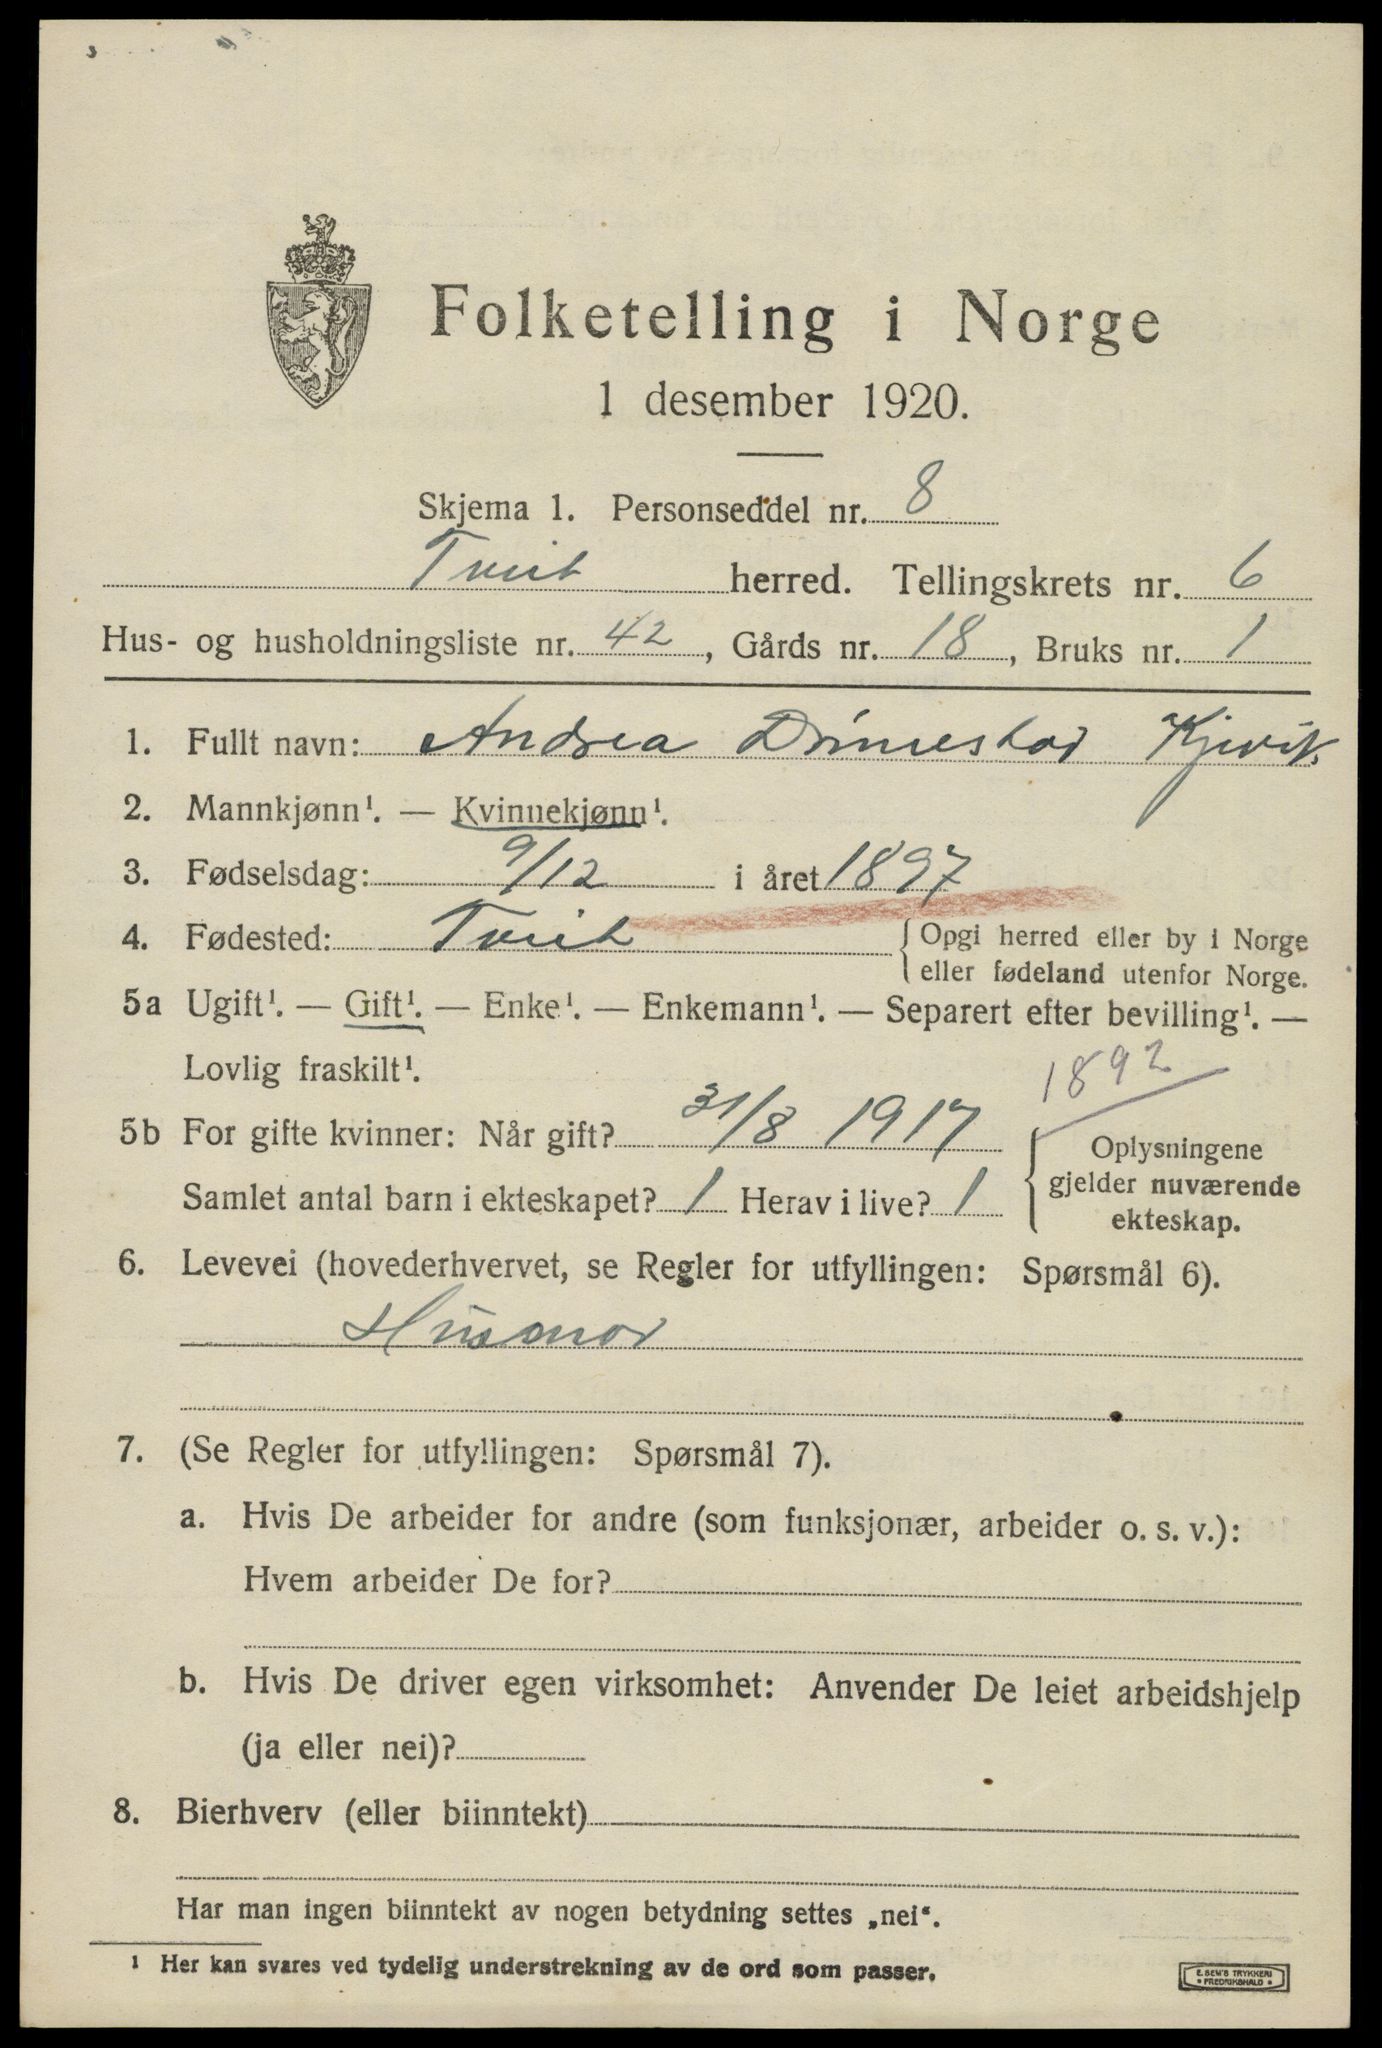 Folketelling i Norge
1 desember 1920.
Skjema 1. Personseddel nr. 8
Tveit herred. Tellingskrets nr. 6
Hus- og husholdningsliste nr. 42, Gårds nr. 18, Bruks nr. 1
1. Fullt navn: Andrea Drönestad Kjevik
2. Mannkjønn¹. — Kvinnekjønn¹.
3. Fødselsdag: 9/12 i året 1897
4. Fødested: Tveit { Opgi herred eller by i Norge
eller fødeland utenfor Norge.
5a Ugift¹. — Gift¹. — Enke¹. — Enkemann¹. — Separert efter bevilling¹. —
Lovlig fraskilt¹.
1892
5b For gifte kvinner: Når gift? 31/8 1917
Samlet antal barn i ekteskapet? 1 Herav i live? 1
{ Oplysningene
gjelder nuværende
ekteskap.
6. Levevei (hovederhvervet, se Regler for utfyllingen: Spørsmål 6).
Husmor
7. (Se Regler for utfyllingen: Spørsmål 7).
a. Hvis De arbeider for andre (som funksjonær, arbeider o. s. v.):
Hvem arbeider De for?
b. Hvis De driver egen virksomhet: Anvender De leiet arbeidshjelp
(ja eller nei)?
8. Bierhverv (eller biinntekt)
Har man ingen biinntekt av nogen betydning settes „nei“.
¹ Her kan svares ved tydelig understrekning av de ord som passer.
E. SEM'S TRYKKERI
• FREDRIKSHALD •